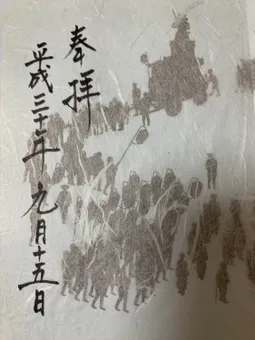 奉拝
平成三十年九月十五日